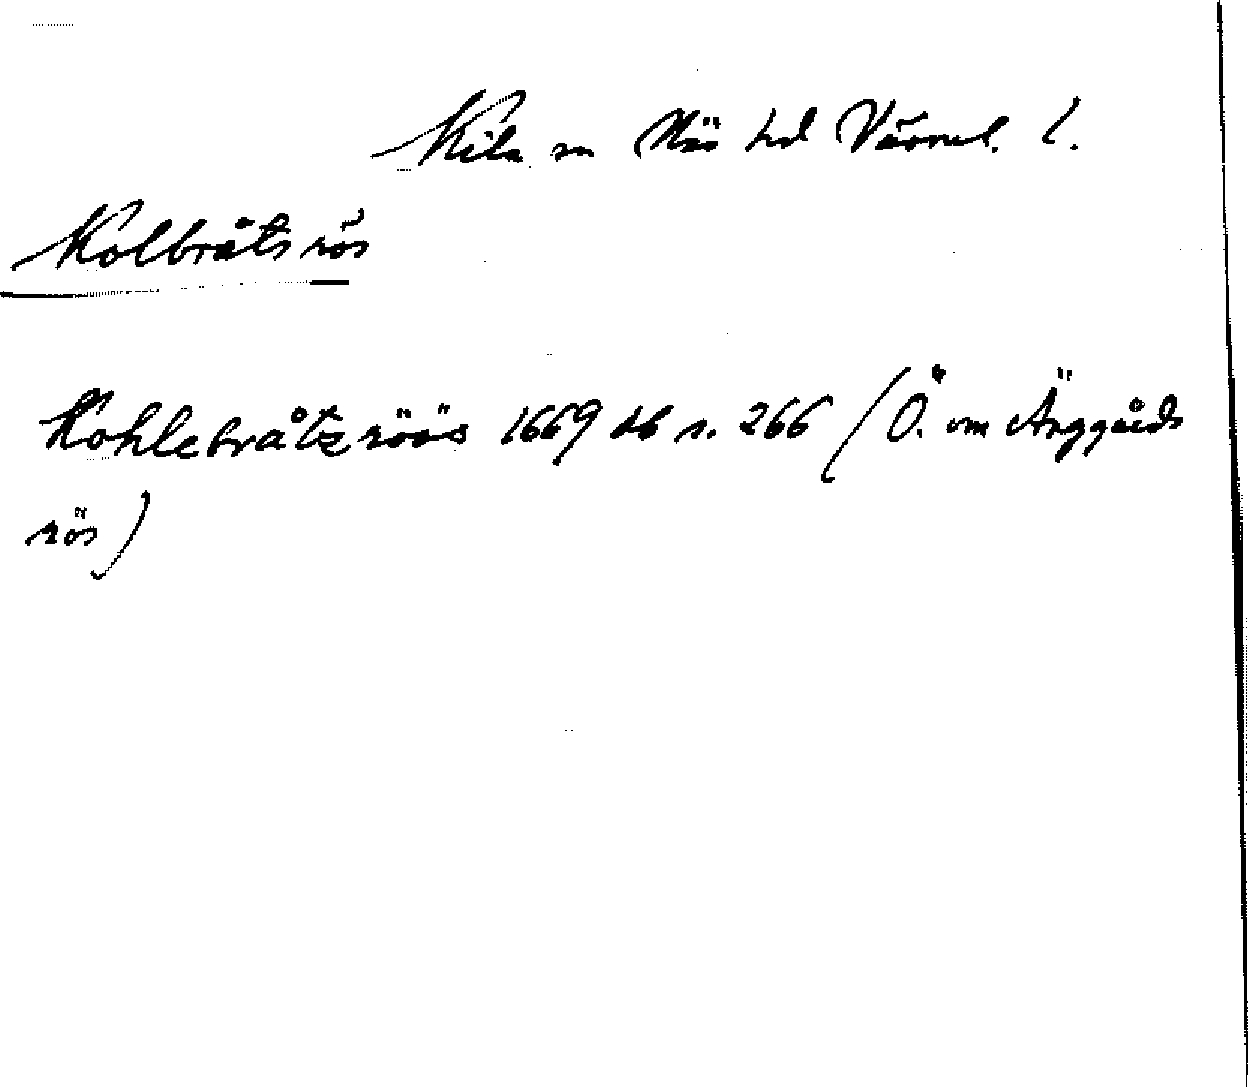 Kila sn Näs hd Värml. l.
Kolbråtsrös
Kohlebråtzröös 1669 db s. 266 (Ö. om Änggårds
rös)